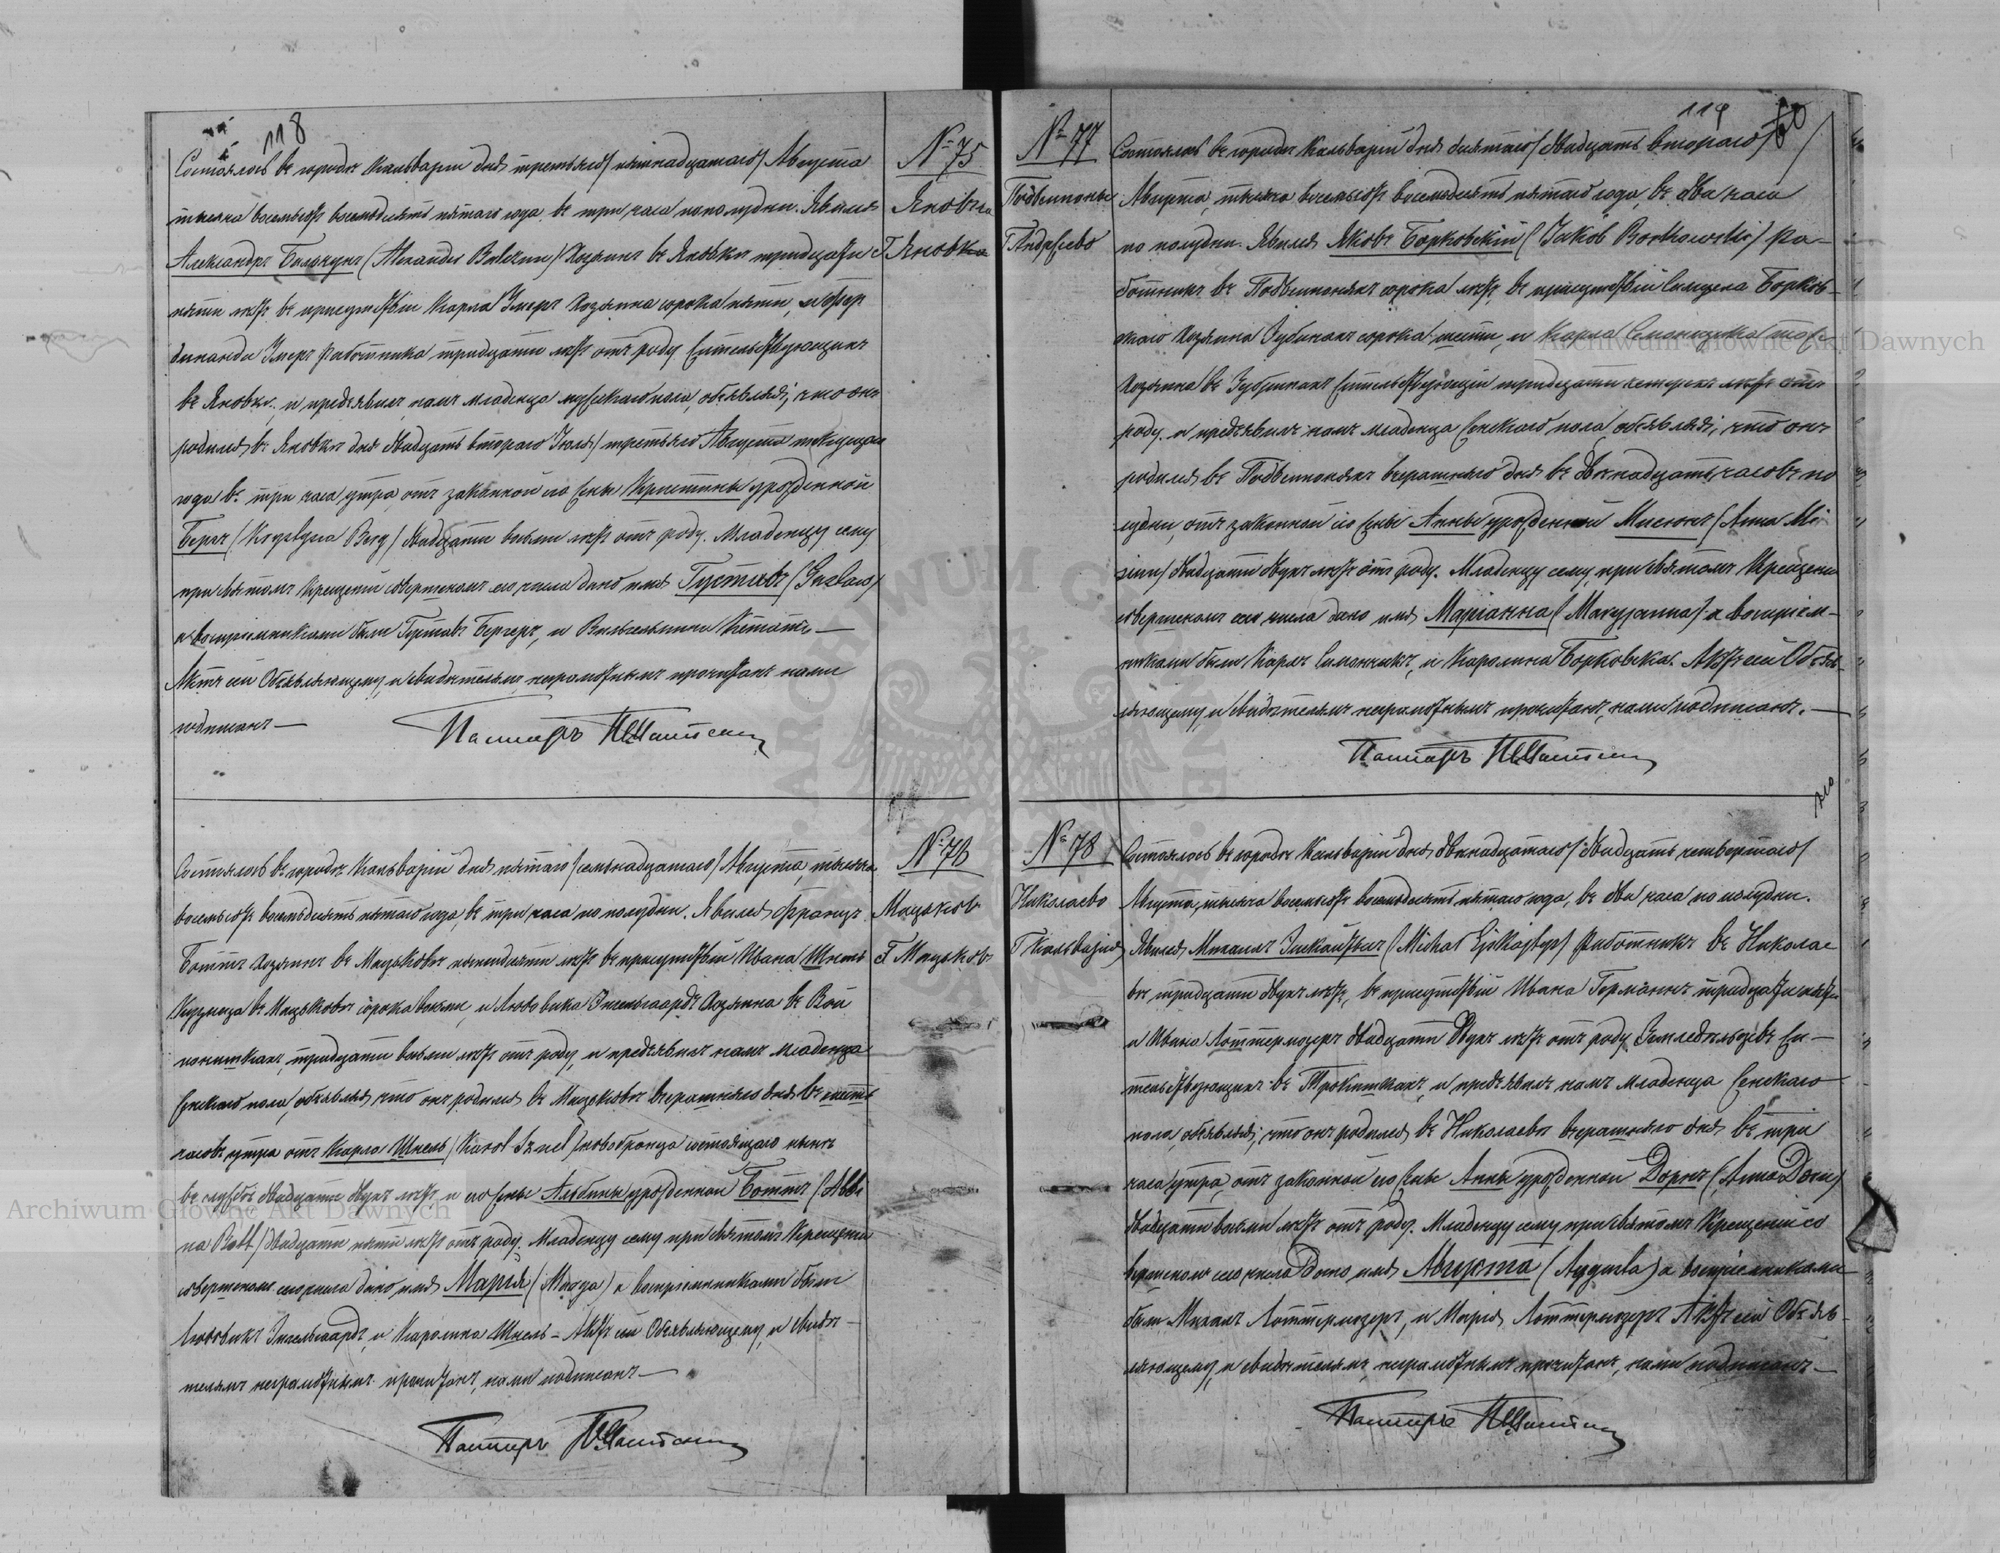 118
№ 75
Яновка
Г Яновка
Состоялось въ городѣ Кальваріи дня третьяго /пятнадцатаго/ Августа
тысяча восемьсотъ восемьдесятъ пятаго года, въ три часа пополудни. Явился
Александръ Бальчунъ (Alexander Balczun) Хозяинъ въ Яновкѣ тридцати
пяти лѣтъ, въ присутствіи Карла хозяина сорока пяти, и Фер
динанда работника тридцати лѣтъ отъ роду жительствующихъ
въ Яновкѣ, и предъявилъ намъ младенца мужескаго пола, объявляя, что онъ
родился въ Яновкѣ дня двадцать втораго Іюля /третьяго Августа текущаго
года въ три часа утра, отъ законной его жены Кристины урожденной
Бергъ (Krystyna Berg) двадцати восьми лѣтъ отъ роду. Младенцу сему
при Святомъ Крещеніи совершенномъ сего числа дано имя Густавъ (Gustaw)
а воспріемниками были Густавъ Бергеръ, и Вильгельмина —
Актъ сей Объявляющему, и свидѣтелямъ неграмотнымъ прочитанъ нами
подписанъ —
Пасторъ
№ 76
Мацьково
Г Мацьково
Состоялось въ городѣ Кальваріи дня пятаго /семьнадцатаго/ Августа, тысяча
восемьсотъ восемьдесятъ пятаго года, въ три часа по полудни. Явился Францъ
Боттъ хозяинъ въ Мацьковѣ пятидесяти лѣтъ въ присутствіи Ивана Шнель
Кузнеца въ Мацьковѣ сорока восьми, и Людовика Энгельгардъ Хозяина въ Вой
понишкахъ, тридцати восьми лѣтъ отъ роду, и предъявилъ намъ младенца
женскаго пола, объявляя что онъ родился въ Мацьковѣ вчерашняго дня въ шесть
часовъ утра отъ Карла Шнель (Karol Sznel) новобранца состоящаго нынѣ
въ службѣ двадцати двухъ лѣтъ, и его жены Альбины урожденной Боттъ (Albi
na Bott) двадцати пяти лѣтъ отъ роду. Младенцу сему при Святомъ Крещеніи
совершенномъ сего числа дано имя Марія (Marya) а воспріемниками были
Людовикъ Энгельгардъ, и Каролина Шнель - Актъ сей Объявляющему, и свидѣ-
телямъ неграмотнымъ прочитанъ, нами подписанъ —
Пасторъ
119
60
№ 77
Г Андреево
Состоялось въ городѣ Кальваріи дня десятаго /двадцать втораго/
Августа, тысяча восемьсотъ восемьдесятъ пятаго года, въ два часа
по полудни. Явился Яковъ Борковскій (Jakob Borkowski) Ра-
ботникъ въ сорока лѣтъ, въ присутствіи Самуела Борков-
скаго Хозяина сорока шести, и Карла тоже
Хозяина въ жительствующій тридцати четырехъ лѣтъ отъ
роду, и предъявилъ намъ младенца женскаго пола, объявляя, что онъ
родился въ вчерашняго дня въ двѣнадцать часовъ по
лудни, отъ законной его жены Анны урожденной (Anna Mi
двадцати двухъ лѣтъ отъ роду. Младенцу сему, при Святомъ Крещеніи
совершенномъ сего числа дано имя Маріанна (Maryjanna) а воспріем-
никами были Карлъ Симончикъ, и Каролина Борковска. Актъ сей Объяв-
ляющему, и свидѣтелямъ неграмотнымъ прочитанъ, нами подписанъ. —
Пасторъ
№ 78
Николаево
Г Кальварія
Состоялось въ городѣ Кальваріи дня двѣнадцатаго /двадцать четвертаго/
Августа, тысяча восемьсотъ восемьдесятъ пятаго года, въ два часа по полудни.
Явился Михаилъ (Michał работникъ въ Николае
вѣ, тридцати двухъ лѣтъ, въ присутствіи Ивана Германъ тридцати пяти
и Ивана Лоттермозеръ двадцати двухъ лѣтъ отъ роду Земледѣльцевъ жи-
тельствующихъ въ и предъявилъ намъ младенца женскаго
пола, объявляя, что онъ родился въ Николаевѣ вчерашняго дня въ три
часа утра, отъ законной его жены Анны урожденной Дорнъ (Anna Dorn)
двадцати восьми лѣтъ отъ роду. Младенцу сему при Святомъ Крещеніи со
вершенномъ сего числа дано имя Августа (Augusta) а воспріемниками
были Михаилъ Лоттермозеръ, и Марія Лоттермозеръ Актъ сей Объяв-
ляющему, и свидѣтелямъ, неграмотнымъ прочитанъ, нами подписанъ —
Пасторъ
ARCHIWUM GŁÓWNE
Archiwum Główne Akt Dawnych
Archiwum Główne Akt Dawnych